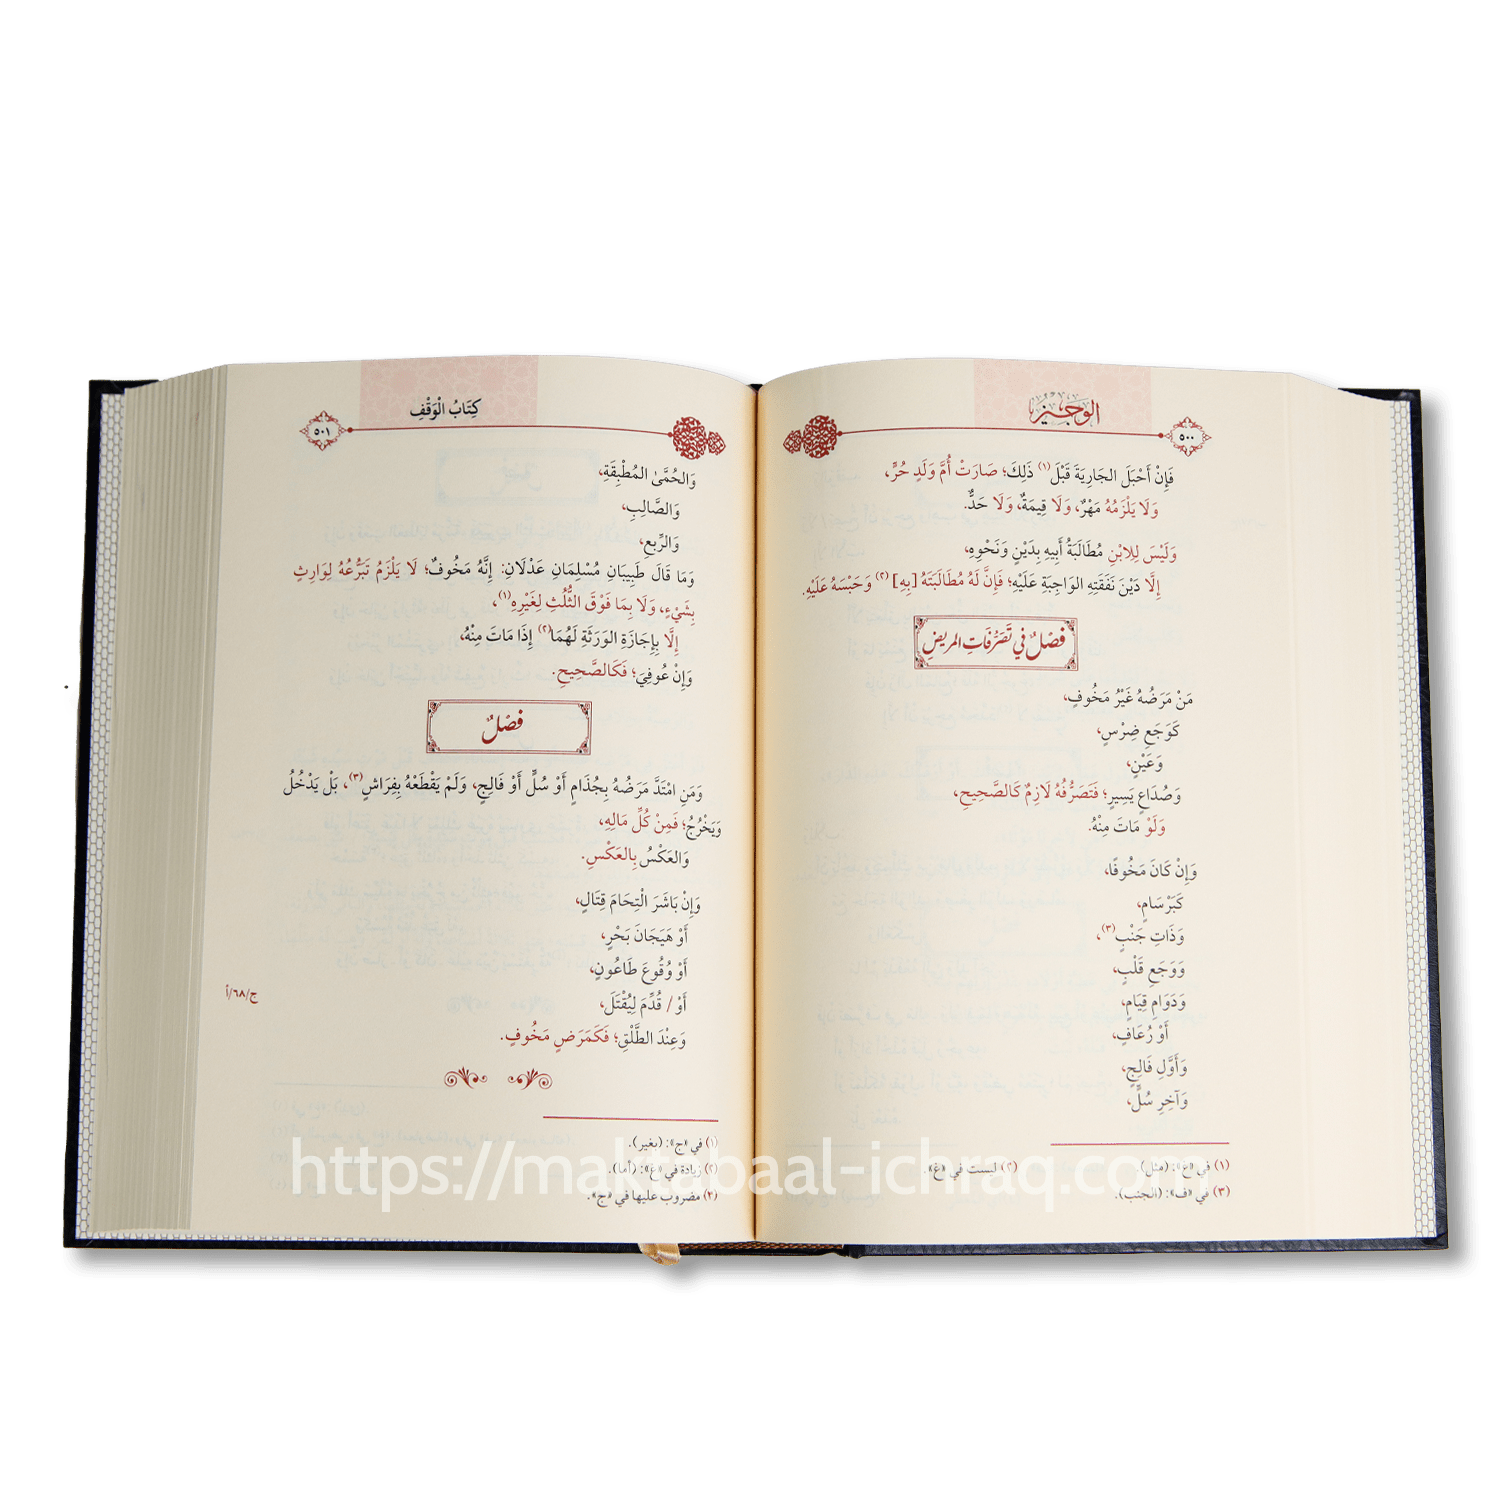 الوَجِيز
٥٠٠
فَإِنْ أَحْبَلَ الجَارِيَةَ قَبْلَ(١) ذَلِكَ؛ صَارَتْ أُمَّ وَلَدٍ حُرٍّ،
وَلَا يَلْزَمُهُ مَهْرٌ، وَلَا قِيمَةٌ، وَلَا حَدٌّ.
وَلَيْسَ لِلِابْنِ مُطَالَبَةُ أَبِيهِ بِدَيْنٍ وَنَحْوِهِ،
إِلَّا دَيْنَ نَفَقَتِهِ الوَاجِبَةِ عَلَيْهِ؛ فَإِنَّ لَهُ مُطَالَبَتَهُ [بِهِ](٢) وَحَبْسَهُ عَلَيْهِ.
فَصْلٌ فِي تَصَرُّفَاتِ المَرِيضِ
مَنْ مَرَضُهُ غَيْرُ مَخُوفٍ،
كَوَجَعِ ضِرْسٍ،
وَعَيْنٍ،
وَصُدَاعٍ يَسِيرٍ؛ فَتَصَرُّفُهُ لَازِمٌ كَالصَّحِيحِ،
وَلَوْ مَاتَ مِنْهُ.
وَإِنْ كَانَ مَخُوفًا،
كَبَرْسَامٍ،
وَذَاتِ جَنْبٍ(٣)،
وَوَجَعِ قَلْبٍ،
وَدَوَامِ قِيَامٍ،
أَوْ رُعَافٍ،
وَأَوَّلِ فَالِجٍ،
وَآخِرِ سُلٍّ،
(١) في «ع»: (مثل).
(٢) ليست في «غ».
(٣) في «ف»: (الجنب).
كِتَابُ الْوَقْفِ
٥٠١
وَالحُمَّىٰ المُطْبِقَةِ،
وَالصَّالِبِ،
وَالرِّبعِ،
وَمَا قَالَ طَبِيبَانِ مُسْلِمَانِ عَدْلَانِ: إِنَّهُ مَخُوفٌ؛ لَا يَلْزَمُ تَبَرُّعُهُ لِوَارِثٍ
بِشَيْءٍ، وَلَا بِمَا فَوْقَ الثُّلُثِ لِغَيْرِهِ(١)،
إِلَّا بِإِجَازَةِ الوَرَثَةِ لَهُمَا(٢) إِذَا مَاتَ مِنْهُ،
وَإِنْ عُوفِيَ؛ فَكَالصَّحِيحِ.
فَصْلٌ
وَمَنِ امْتَدَّ مَرَضُهُ بِجُذَامٍ أَوْ سُلٍّ أَوْ فَالِجٍ، وَلَمْ يَقْطَعْهُ بِفِرَاشٍ(٣)، بَلْ يَدْخُلُ
وَيَخْرُجُ؛ فَمِنْ كُلِّ مَالِهِ،
وَالعَكْسُ بِالعَكْسِ.
وَإِنْ بَاشَرَ الْتِحَامَ قِتَالٍ،
أَوْ هَيَجَانَ بَحْرٍ،
أَوْ وُقُوعَ طَاعُونٍ،
أَوْ / قُدِّمَ لِيُقْتَلَ،
ج/٦٨/أ
وَعِنْدَ الطَّلْقِ؛ فَكَمَرَضٍ مَخُوفٍ.
(١) في «ج»: (بغير).
(٢) زيادة في «غ»: (أما).
(٢) مضروب عليها في «ج».
https://maktabaal-ichraq.com